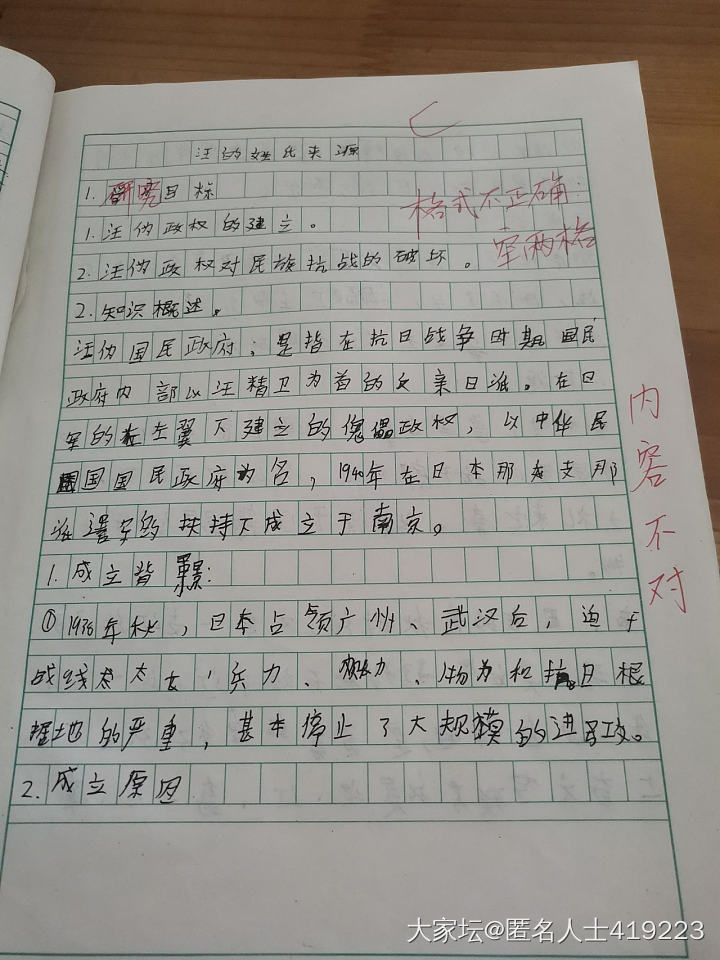 汪的姓氏来源
1. 研究目标
格式不正确:
空两格
1. 汪伪政权的建立。
2. 汪伪政权对民族抗战的破坏。
2. 知识概述。
汪伪国民政府;是指在抗日战争时期国民
政府内部以汪精卫为首的亲日派。在日
军的左翼下建立的傀儡政权,以中华民
国国民政府为名,1940年在日本那支那
派遣军的扶持下成立于南京。
1. 成立背景:
①1938年秋,日本占领广州、武汉后,迫于
战线太太长,兵力、力、物为和抗日根
据地的严重,基本停止了大规模的进攻。
2. 成立原因
内容不对
大家坛@匿名人士419223